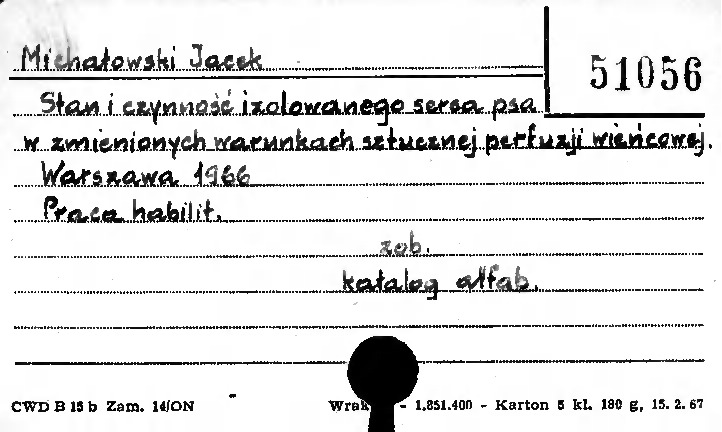 Michałowski Jacek
51056
Stan i czynność izolowanego serca psa
w zmienionych warunkach sztucznej perfuzji wieńcowej.
Warszawa 1966
Praca habilit.
zob.
katalog alfab.
CWD B 15 b Zam. 14/ON
- 1.851.400 - Karton 5 kl. 180 g, 15. 2. 67